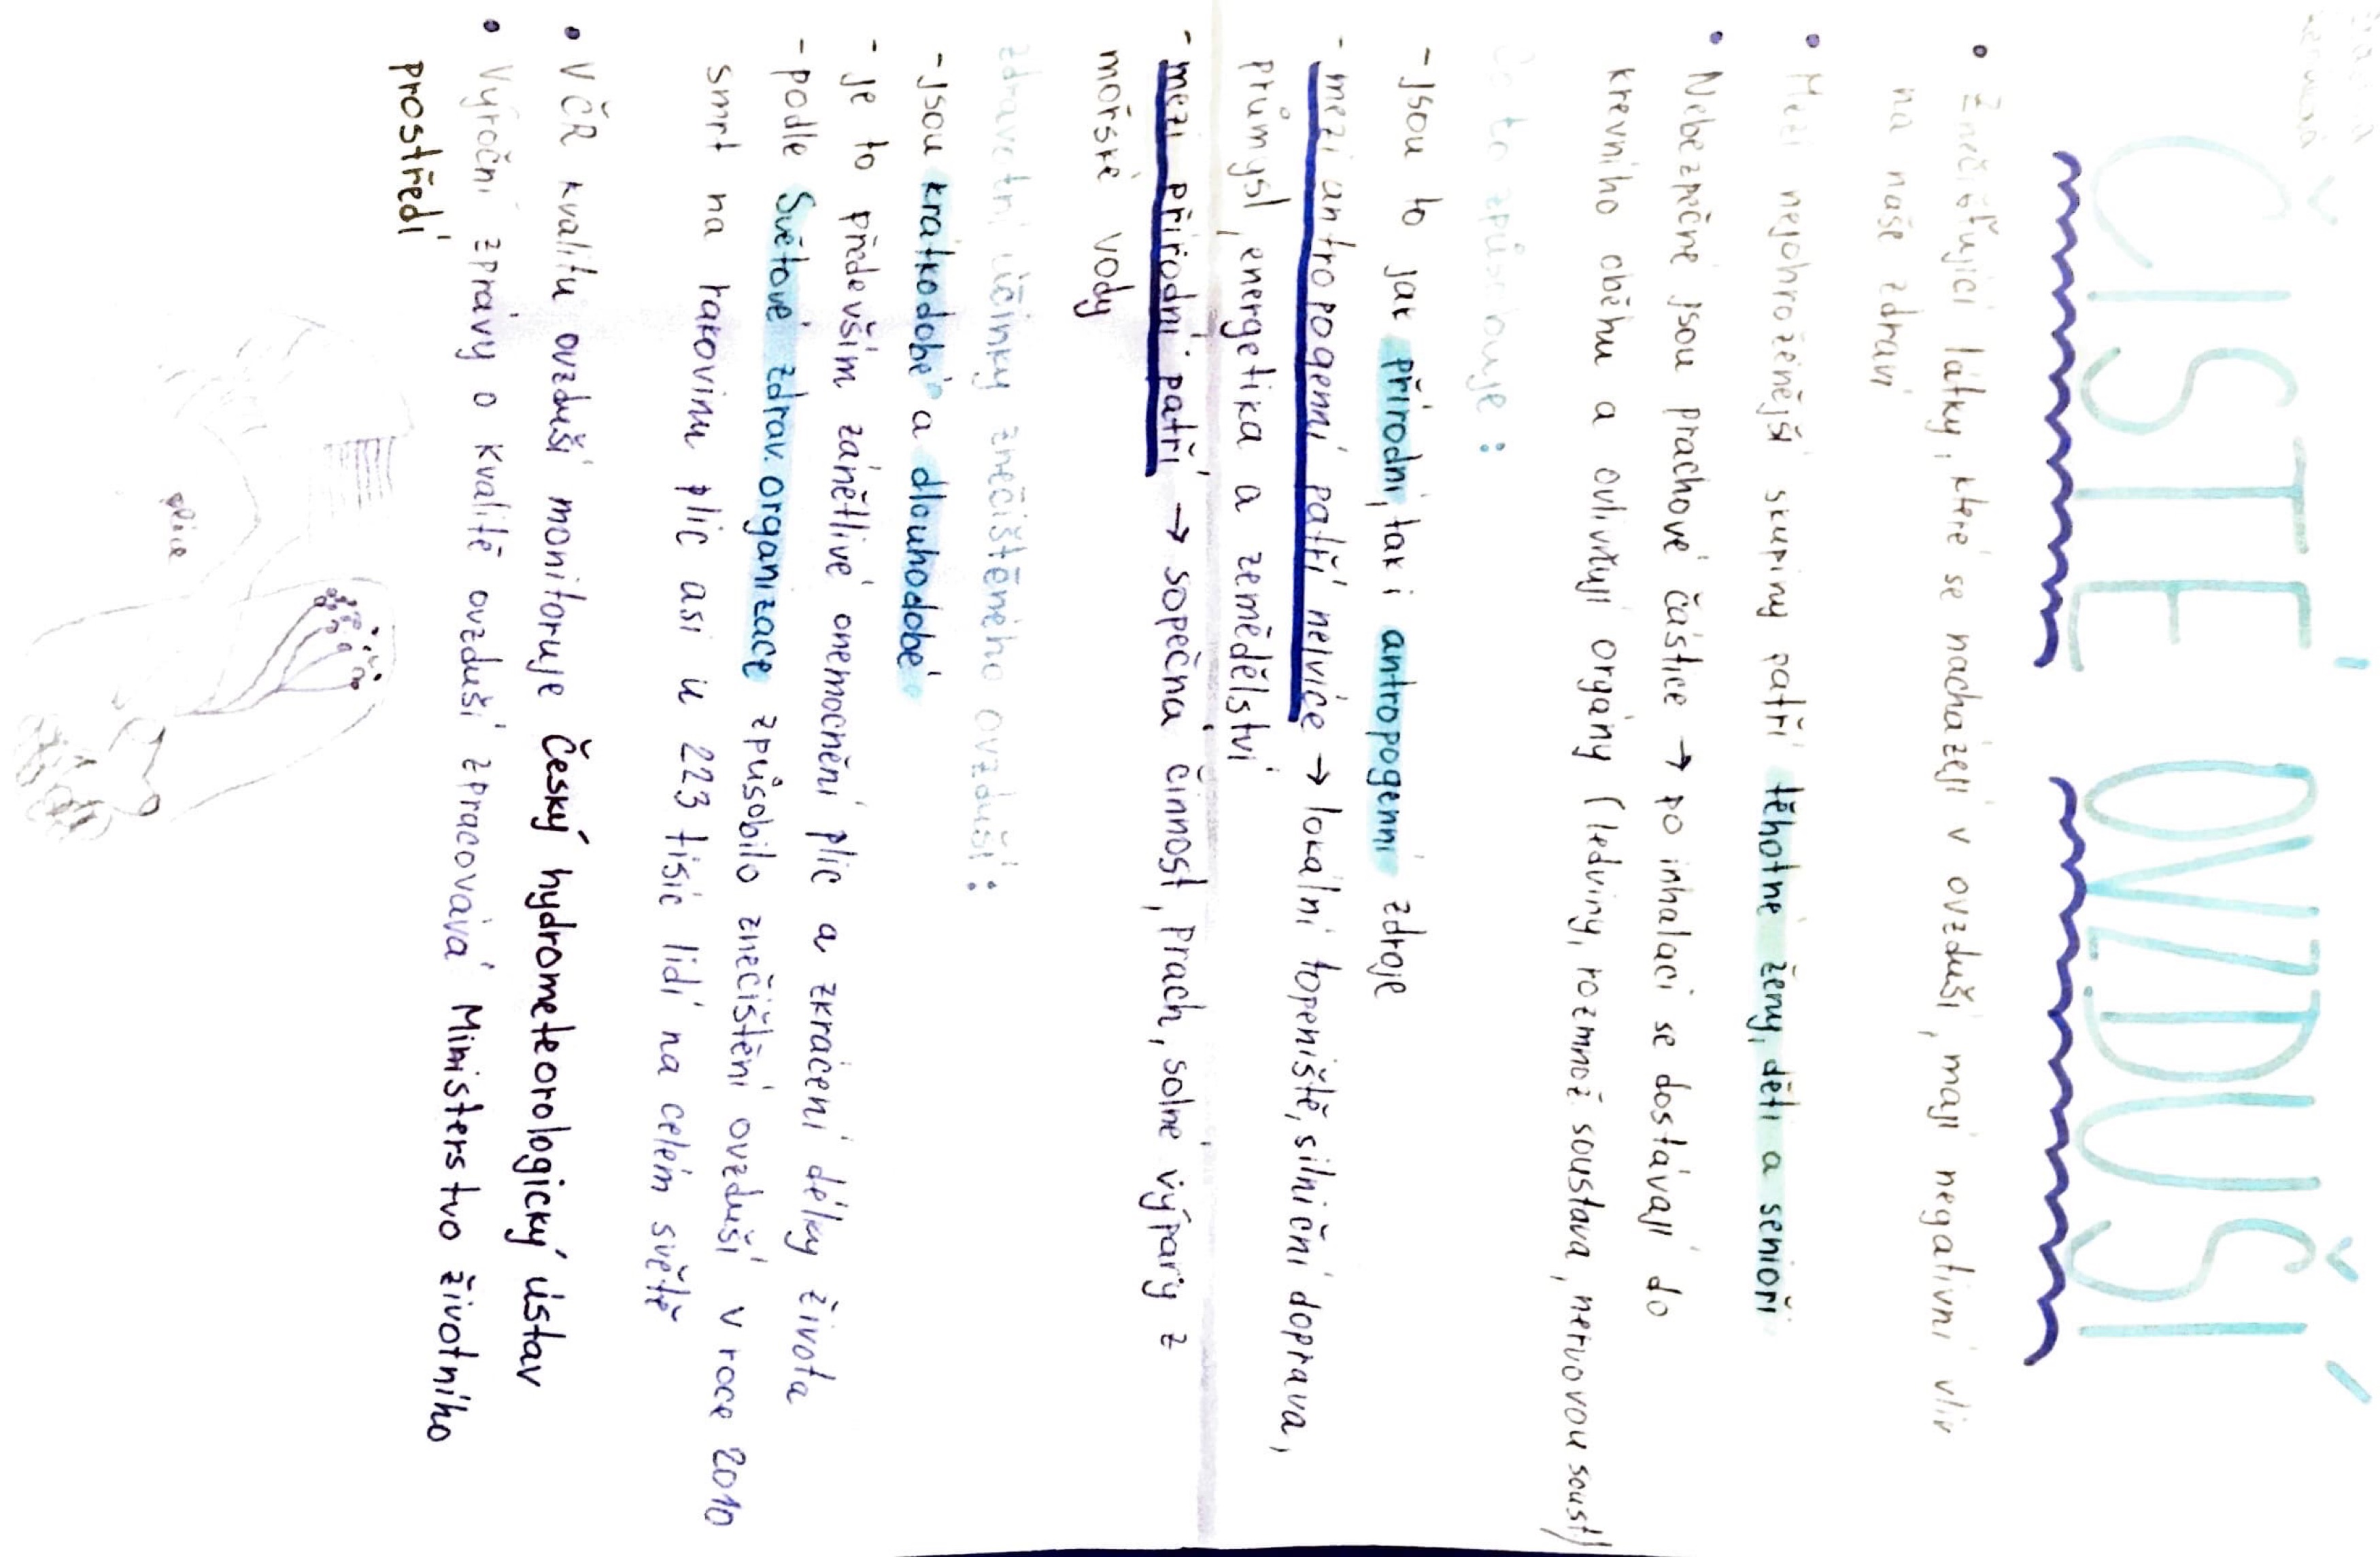 ČISTÉ OVZDUŠÍ
• Znečišťující látky, které se nacházejí v ovzduší, mají negativní vliv
na naše zdraví
• Mezi nejohroženější skupiny patří těhotné ženy, děti a senioři
• Nebezpečné jsou prachové částice → po inhalaci se dostávají do
krevního oběhu a ovlivňují orgány (ledviny, rozmnož soustava, nervovou soust)
Co to způsobuje:
- jsou to jak přírodní, tak i antropogenní zdroje
- mezi antropogenní patří nejvíce → lokální topeniště, silniční doprava,
průmysl, energetika a zemědělství
- mezi přírodní patří → sopečná činnost, prach, solné výpary z
mořské vody
zdravotní účinky znečištěného ovzduší:
- jsou krátkodobé a dlouhodobé
- je to především zánětlivé onemocnění plic a zkrácení délky života
- podle Světové zdrav. organizace způsobilo znečištění ovzduší v roce 2010
smrt na rakovinu plic asi u 223 tisíc lidí na celém světě
• V ČR kvalitu ovzduší monitoruje Český hydrometeorologický ústav
• Výroční zprávy o kvalitě ovzduší zpracovává Ministerstvo životního
prostředí
plíce